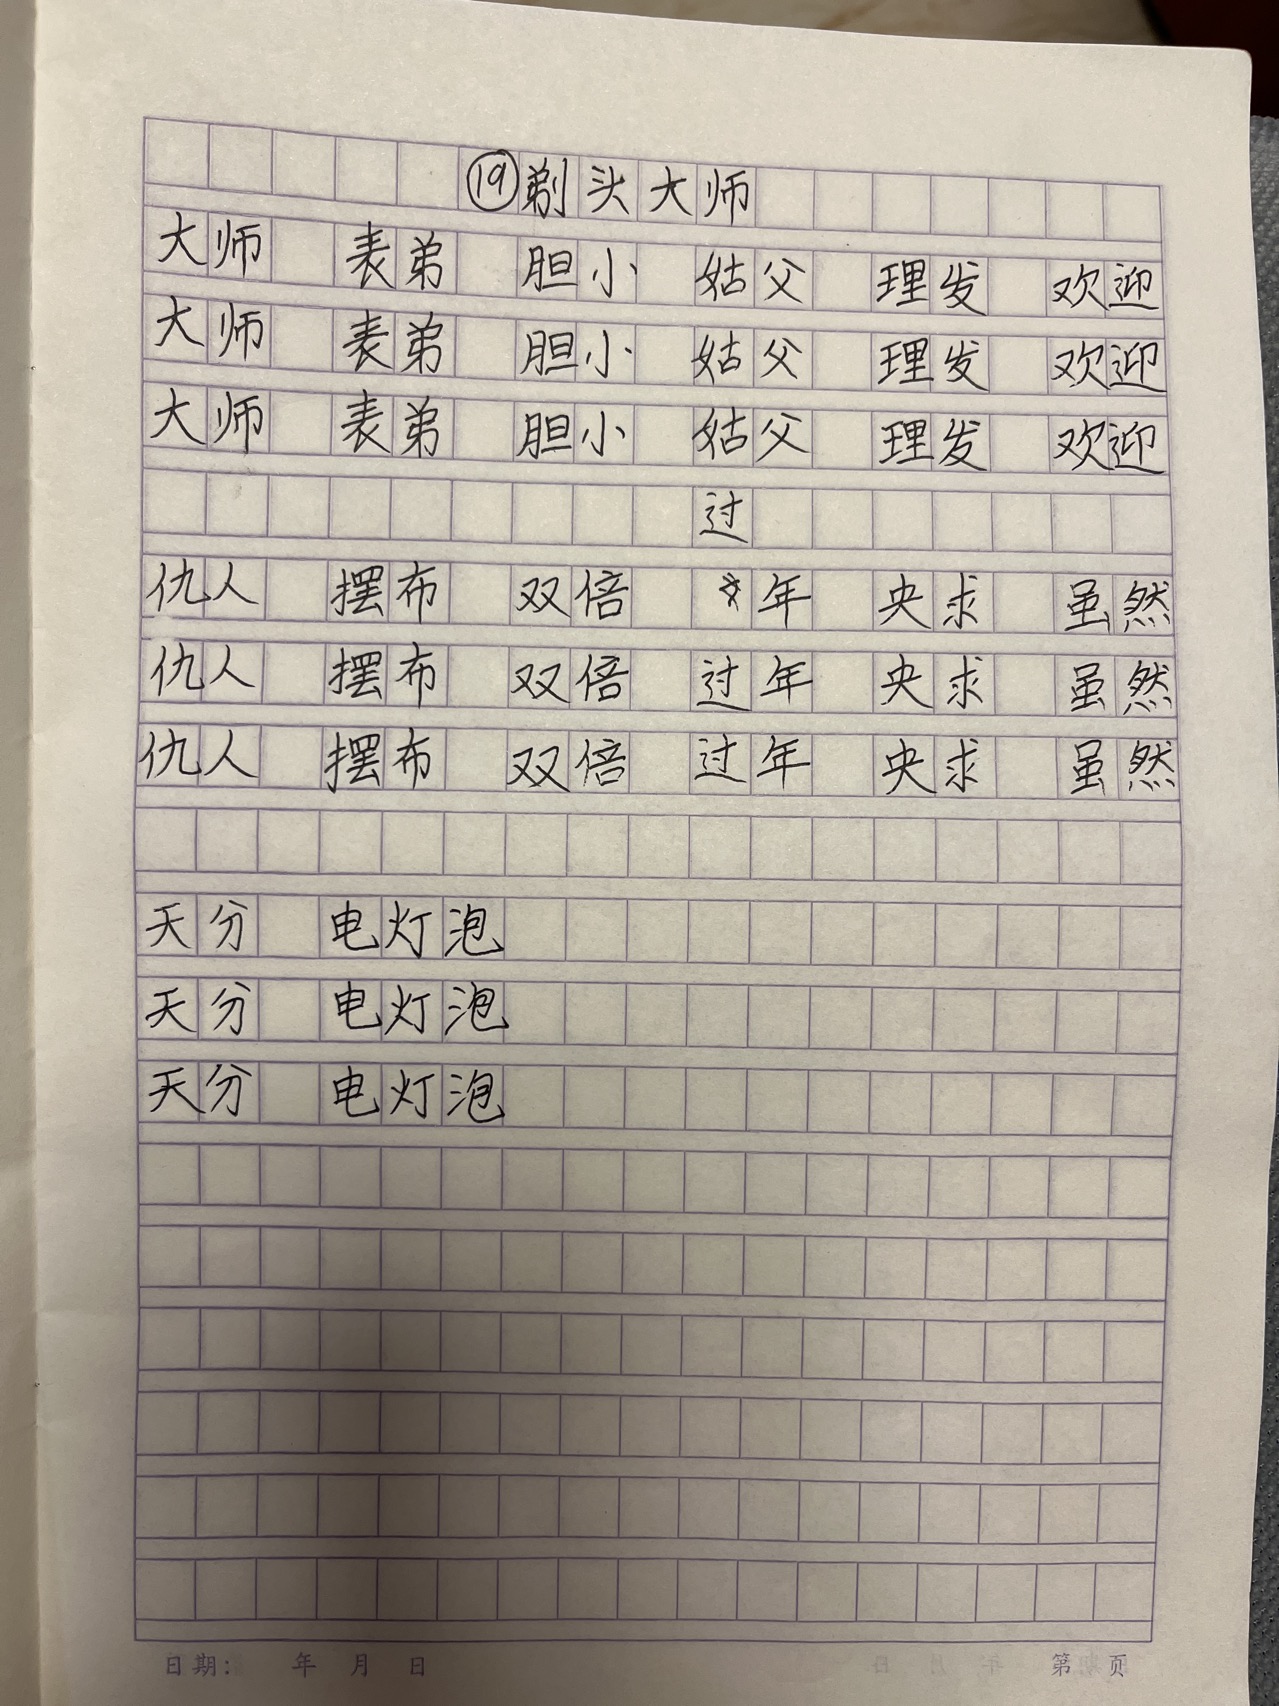 ⑲剃头大师
大师 表弟 胆小 姑父 理发 欢迎
大师 表弟 胆小 姑父 理发 欢迎
大师 表弟 胆小 姑父 理发 欢迎
过
仇人 摆布 双倍 年 央求 虽然
仇人 摆布 双倍 过年 央求 虽然
仇人 摆布 双倍 过年 央求 虽然
天分 电灯泡
天分 电灯泡
天分 电灯泡
日期: 年 月 日 第 页